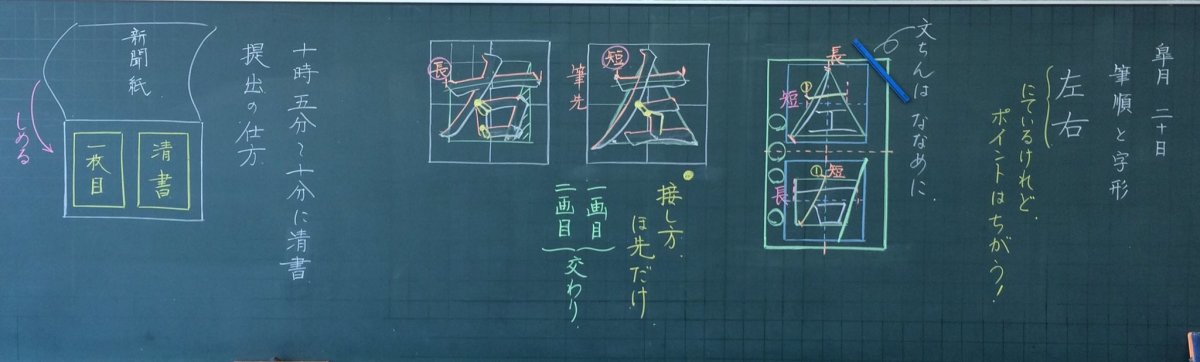 皐月 二十日
筆順と字形
左右
にているけれど、
ポイントはちがう!
文ちんは ななめに
長
短
①
短
①
長
左
短
筆先
右
長
接し方
ほ先だけ
一画目
二画目
交わり
十時五分〜十分に清書
提出の仕方
新聞紙
清書
一枚目
しめる